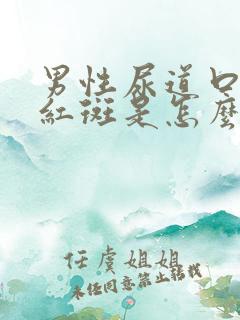 男性尿道口
紅斑是怎麼
任虞姐姐
未经同意禁止转载